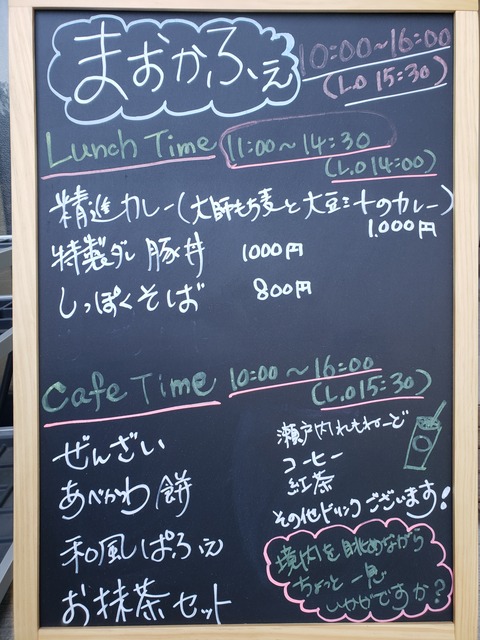 まおかふぇ
10:00~16:00
(L.O 15:30)
Lunch Time 11:00~14:30
(L.O 14:00)
精進カレー(大師もち麦と大豆ミートのカレー)
1,000円
特製ダレ 豚丼 1000円
しっぽくそば 800円
Cafe Time 10:00~16:00
(L.O 15:30)
ぜんざい
あべかわ餅
和風ぱふぇ
お抹茶セット
瀬戸内れもねーど
コーヒー
紅茶
その他ドリンクございます!
境内を眺めながら
ちょっと一息
いかがですか?